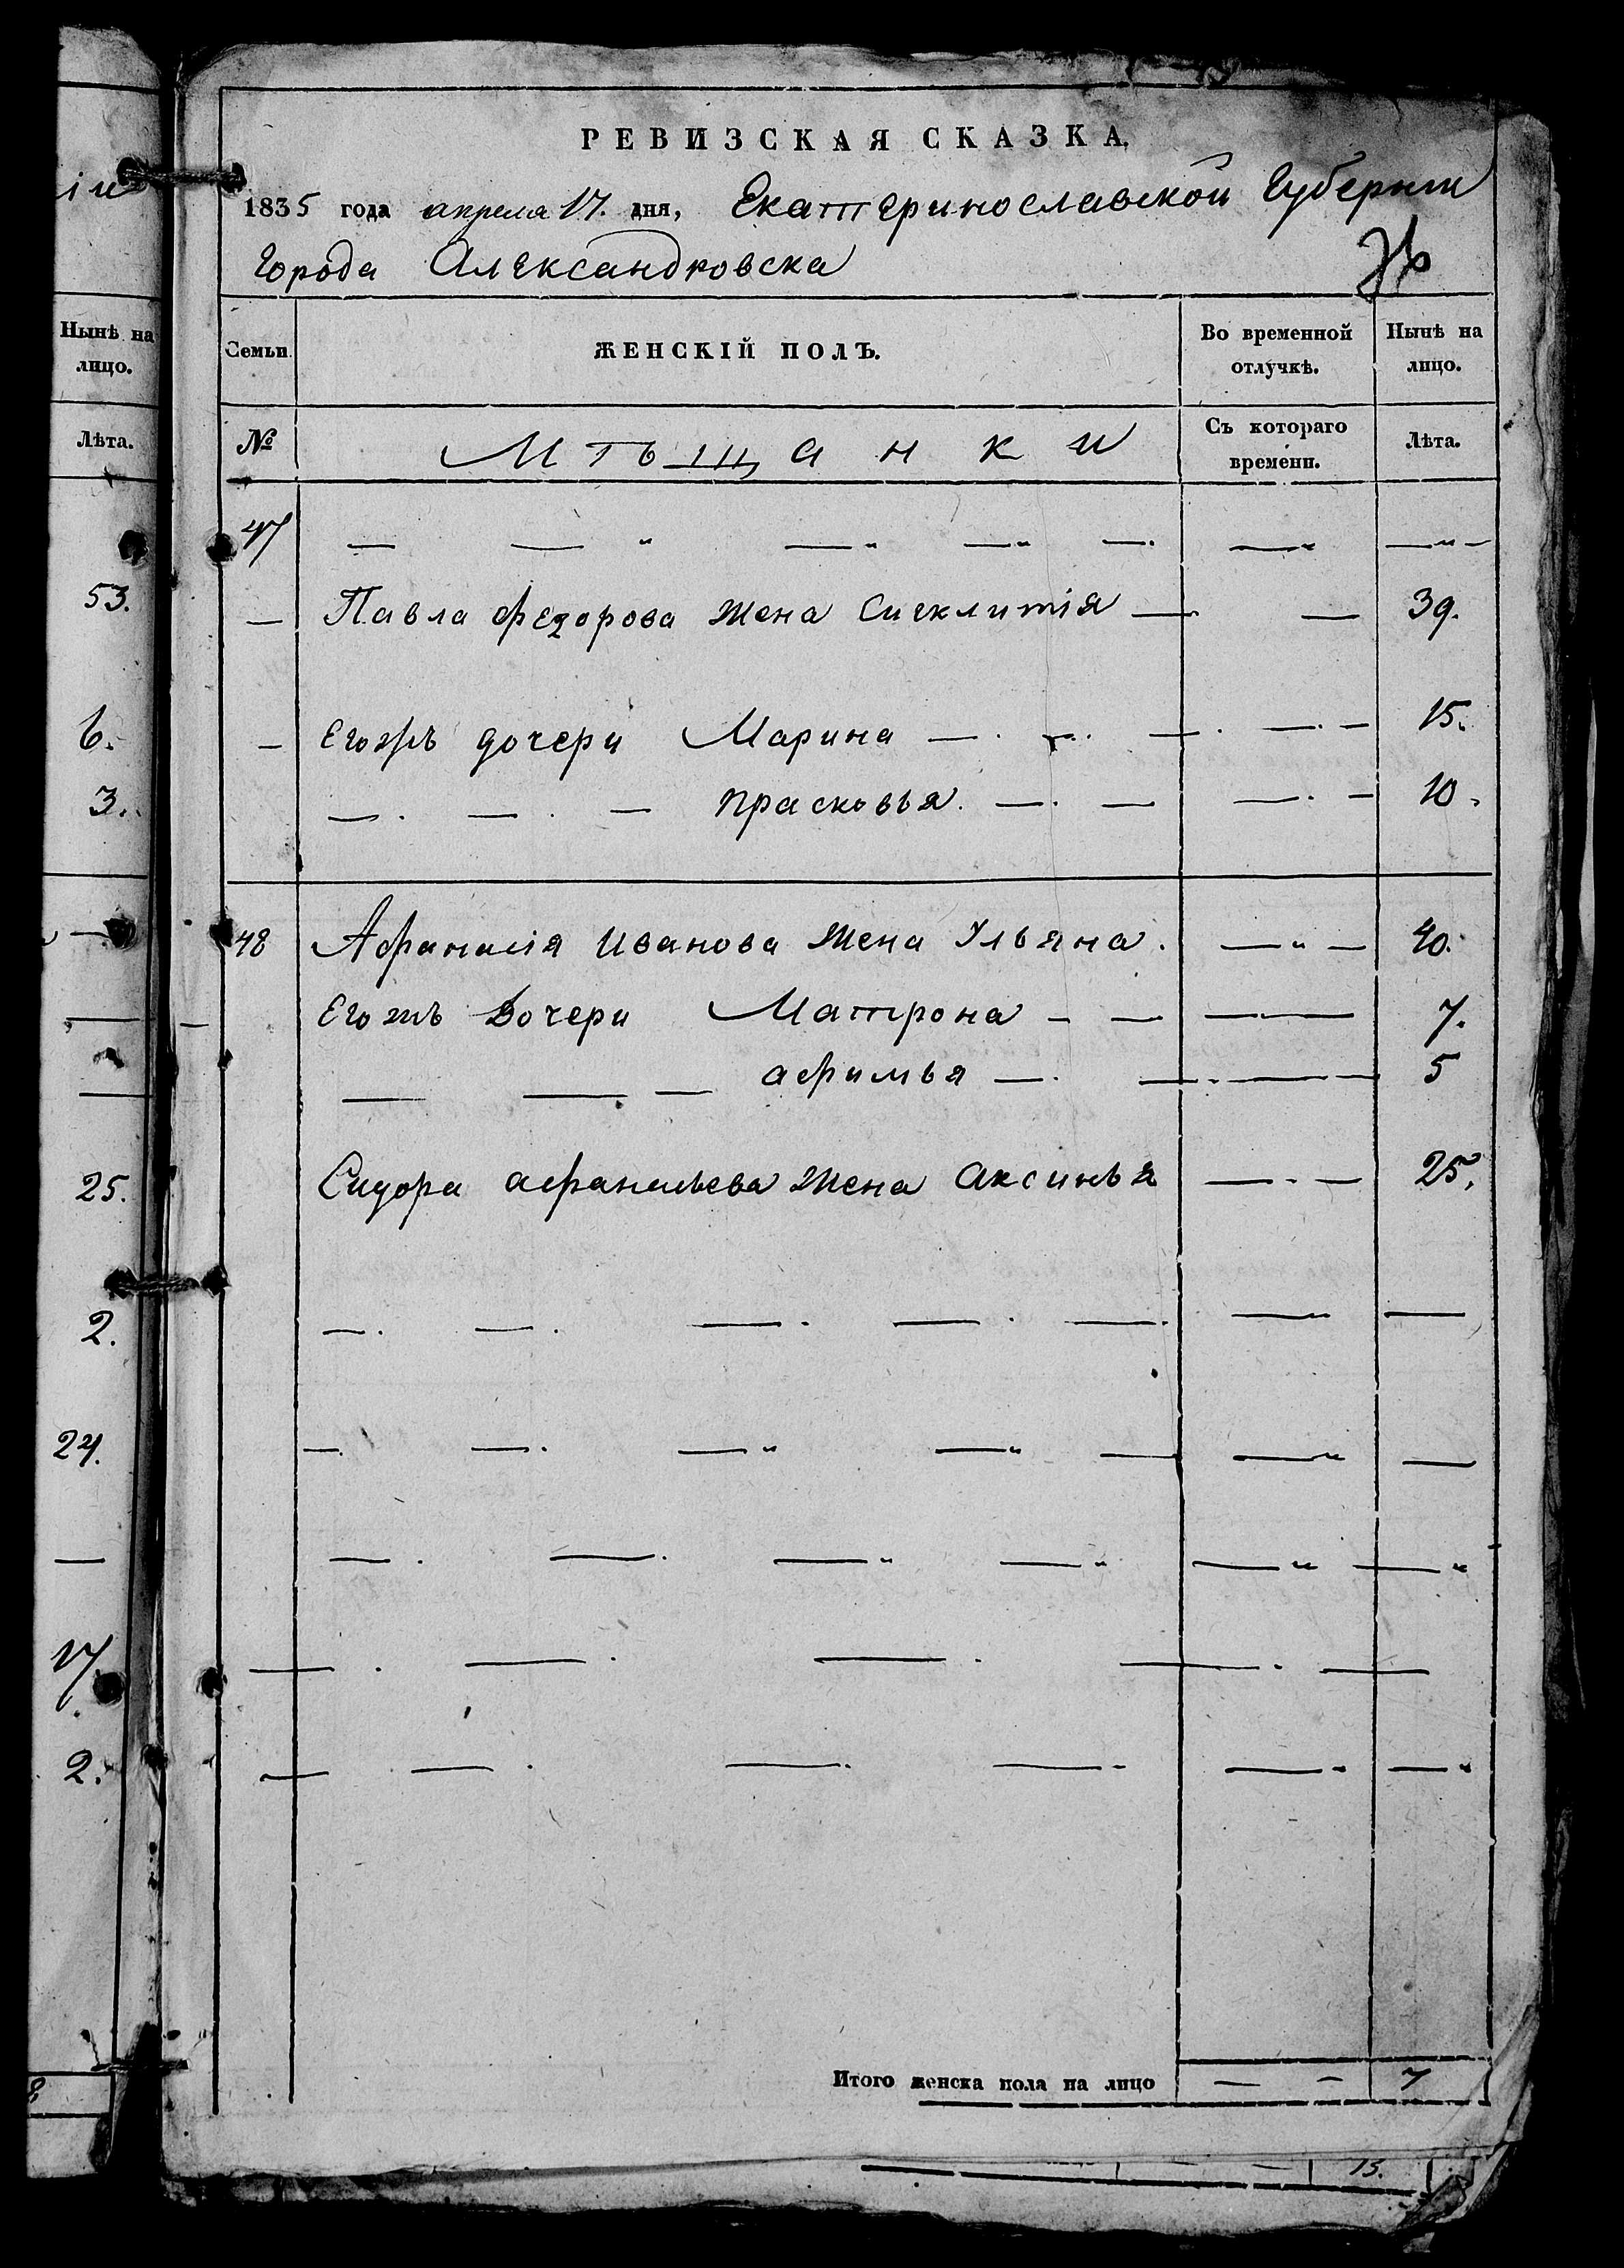 іи
Нынѣ на
лицо.
Лѣта.
53.
6.
3.
25.
2.
24.
17.
2.
РЕВИЗСКАЯ СКАЗКА,
1835 года апреля 17. дня, Екатеринославской Губернии
Города Александровска
Семьи. ЖЕНСКІЙ ПОЛЪ. Во временной отлучкѣ. Нынѣ на лицо.
№ Мѣщанки Съ котораго времени. Лѣта.
47 — — „ — „ — „ — . — „ — „ —
— Павла Федорова Жена Сиклитія — — 39.
— Егожъ дочери Марина — . — . — . — . — 15.
— . — . — прасковья . — . — — . — 10.
48 Афанасія Иванова Жена Ульяна . — „ — 40.
Егожъ Дочери Матрона — — — . — 7.
— — — афимья — . — . — — 5
Сидора афанасьева Жена Аксинья — . — 25.
— . — . — . — . — . — „ —
— . — . — „ — „ — — „ —
— . — . — „ — „ — „ — „
— . — . — . — . —
— — . — . — . — . — .
Итого женска пола на лицо — — 7
15.